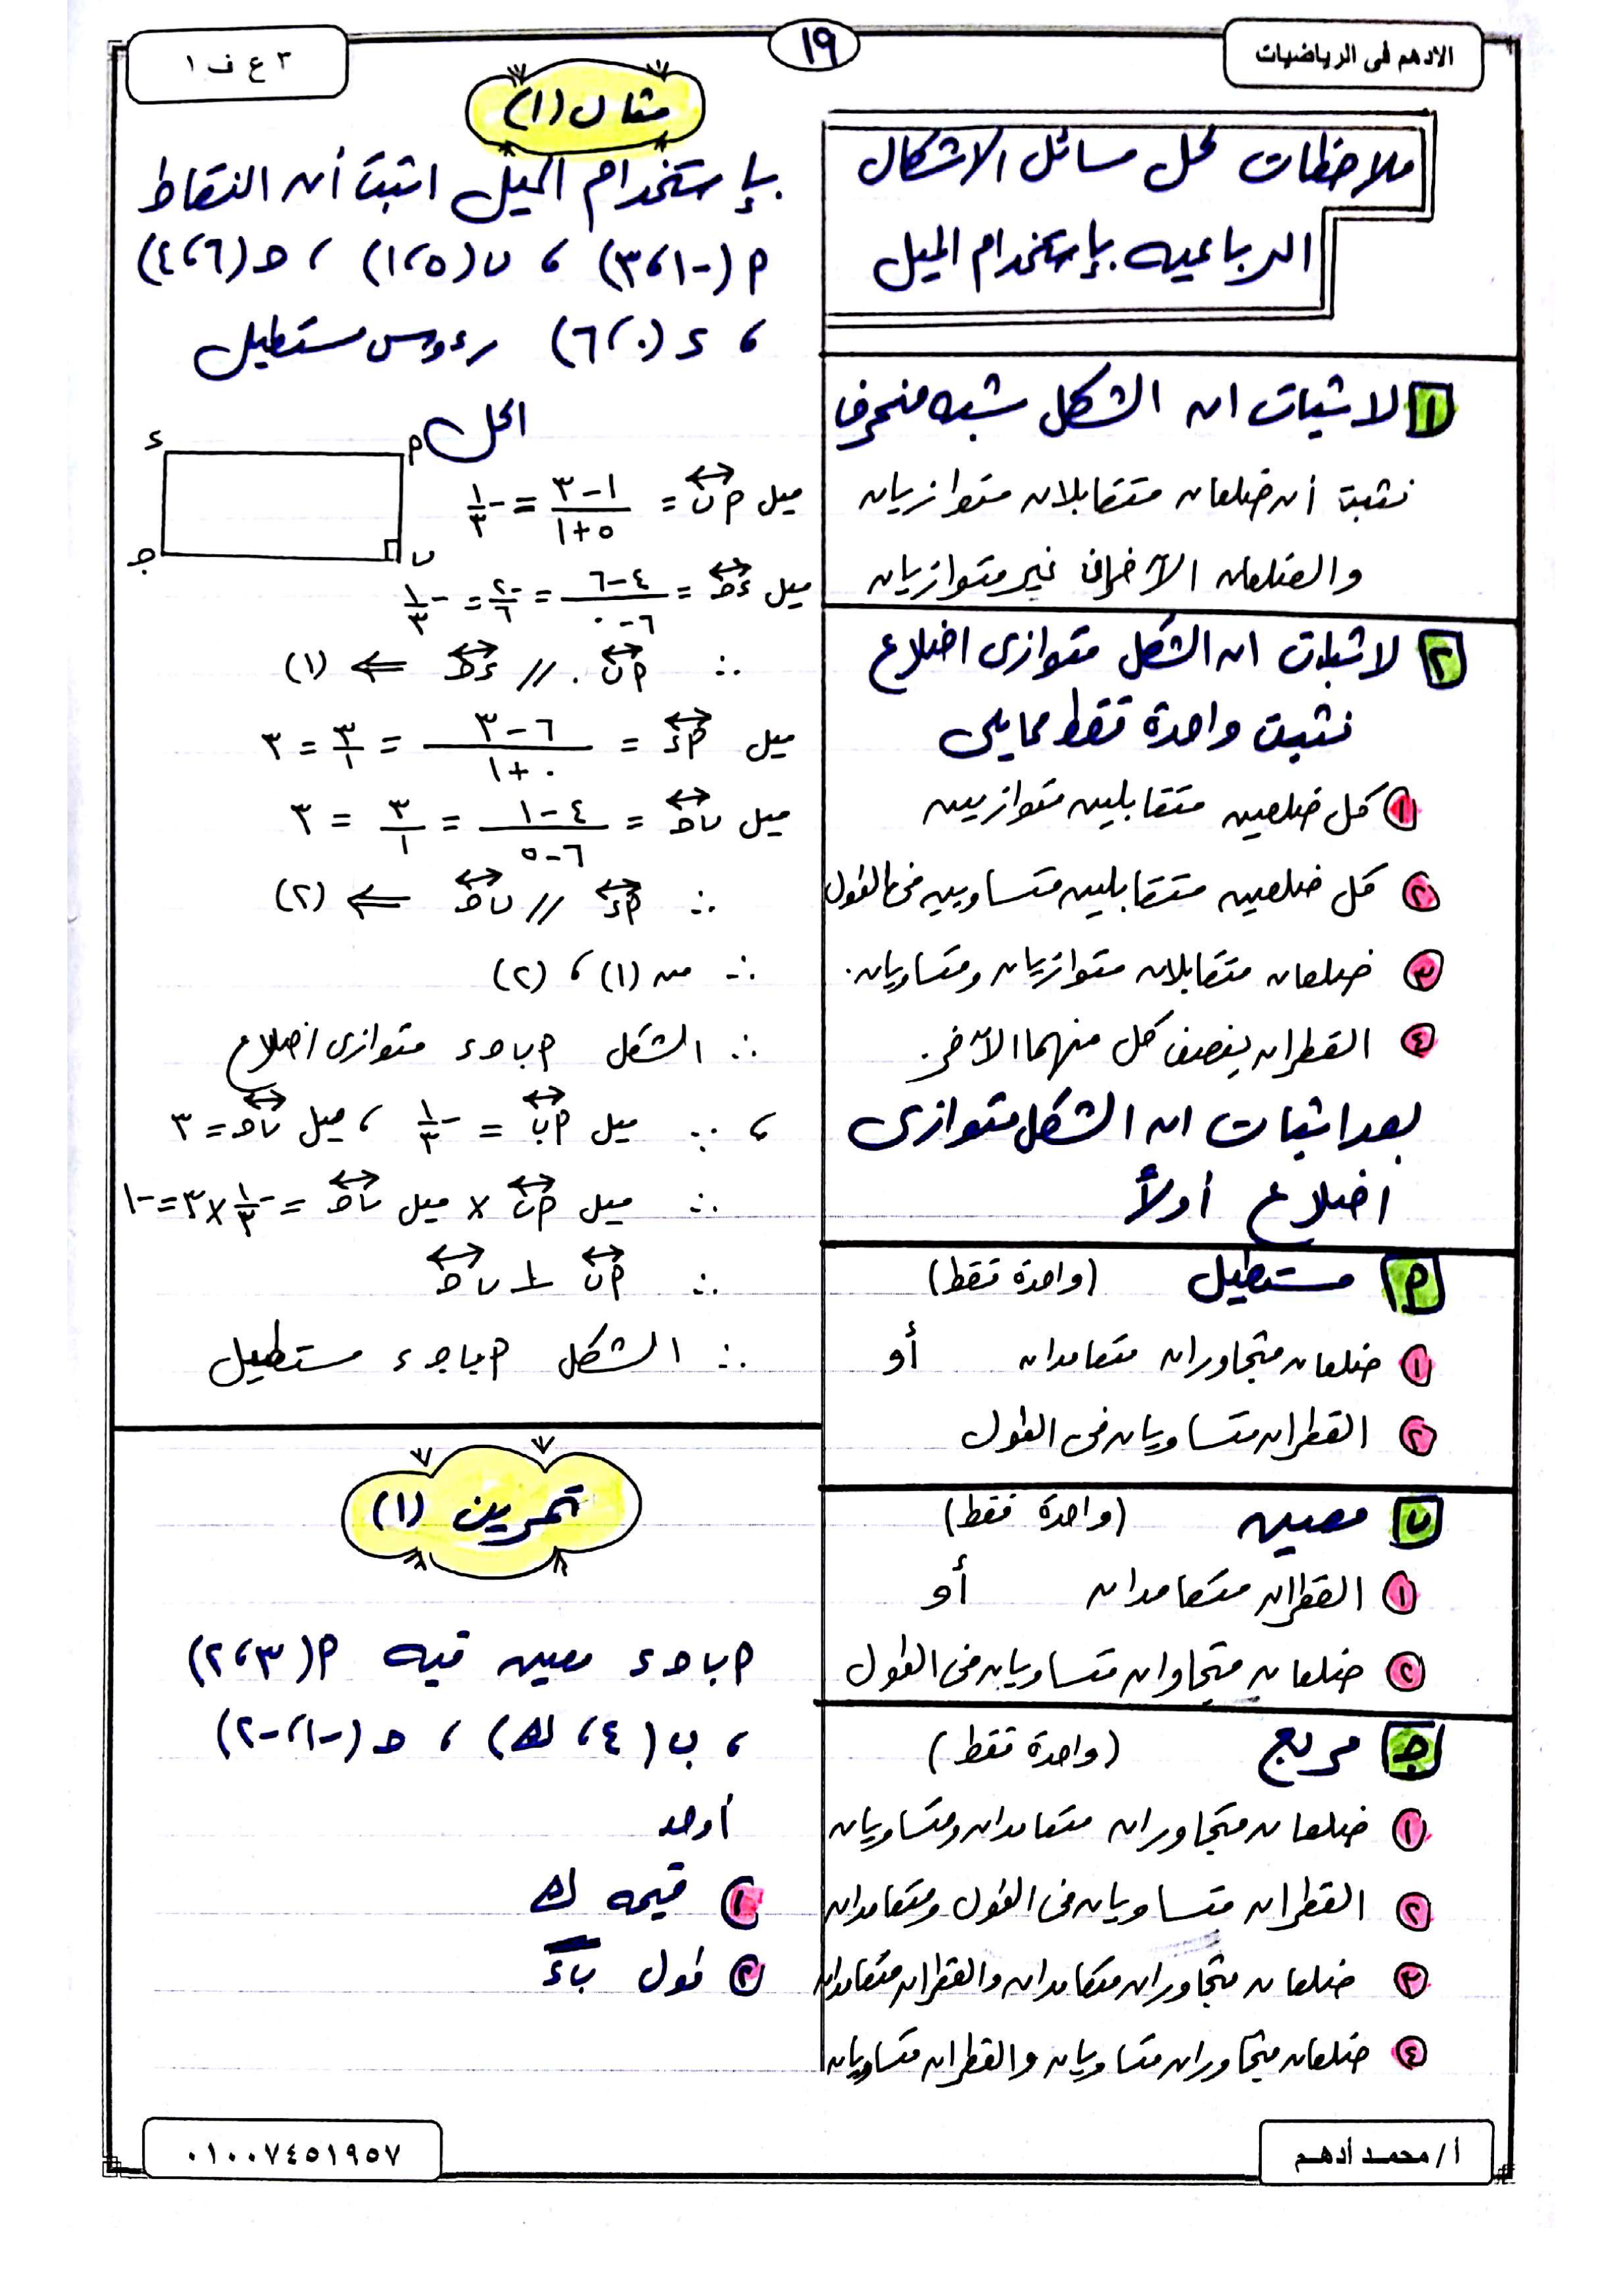 الادهم فى الرياضيات
١٩
٣ ع ف ١
ملاحظات لحل مسائل الاشكال
الرباعيه بإستخدام الميل
١ لاثبات ان الشكل شبه منحرف
نثبت أن ضلعان متقابلان متوازيان
والضلعان الآخران غير متوازيان
٢ لاثبات ان الشكل متوازى اضلاع
نثبت واحدة فقط مما يلى
١ كل ضلعين متقابلين متوازيين
٢ كل ضلعين متقابلين متساويين فى الطول
٣ ضلعان متقابلان متوازيان ومتساويان.
٤ القطران ينصف كل منهما الآخر.
بعد اثبات ان الشكل متوازى
اضلاع أولاً
م مستطيل (واحدة فقط)
١ ضلعان متجاوران متعامدان أو
٢ القطران متساويان فى الطول
ب معين (واحدة فقط)
١ القطران متعامدان أو
٢ ضلعان متجاوان متساويان فى الطول
جـ مربع (واحدة فقط)
١ ضلعان متجاوران متعامدان ومتساويان
٢ القطران متساويان فى الطول ومتعامدان
٣ ضلعان متجاوران متعامدان والقطران متعامدان
٤ ضلعان متجاوران متساويان والقطران متساويان
مثال (١)
بإستخدام الميل اثبت أن النقاط
م (-١، ٣) ، ب (٥، ١) ، حـ (٦، ٤)
، ء (٠، ٦) رءوس مستطيل
الحل
ء م
جـ ب
ميل م ب = (١-٣)/(٥+١) = -١/٣
ميل ء حـ = (٤-٦)/(٦-٠) = -٢/٦ = -١/٣
∴ م ب // ء حـ ⇐ (١)
ميل م ء = (٦-٣)/(٠+١) = ٣/١ = ٣
ميل ب حـ = (٤-١)/(٦-٥) = ٣/١ = ٣
∴ م ء // ب حـ ⇐ (٢)
∴ من (١) ، (٢)
∴ الشكل م ب حـ ء متوازى اضلاع
، ∵ ميل م ب = -١/٣ ، ميل ب حـ = ٣
∴ ميل م ب × ميل ب حـ = -١/٣ × ٣ = -١
∴ م ب ⊥ ب حـ
∴ الشكل م ب جـ ء مستطيل
تمرين (١)
م ب حـ ء معين فيه م (٣، ٢)
، ب (٤، ك) ، حـ (-١، -٢)
أوجد
١ قيمه ك
٢ طول ب ء
أ/ محمد أدهم
٠١٠٠٧٤٥١٩٥٧